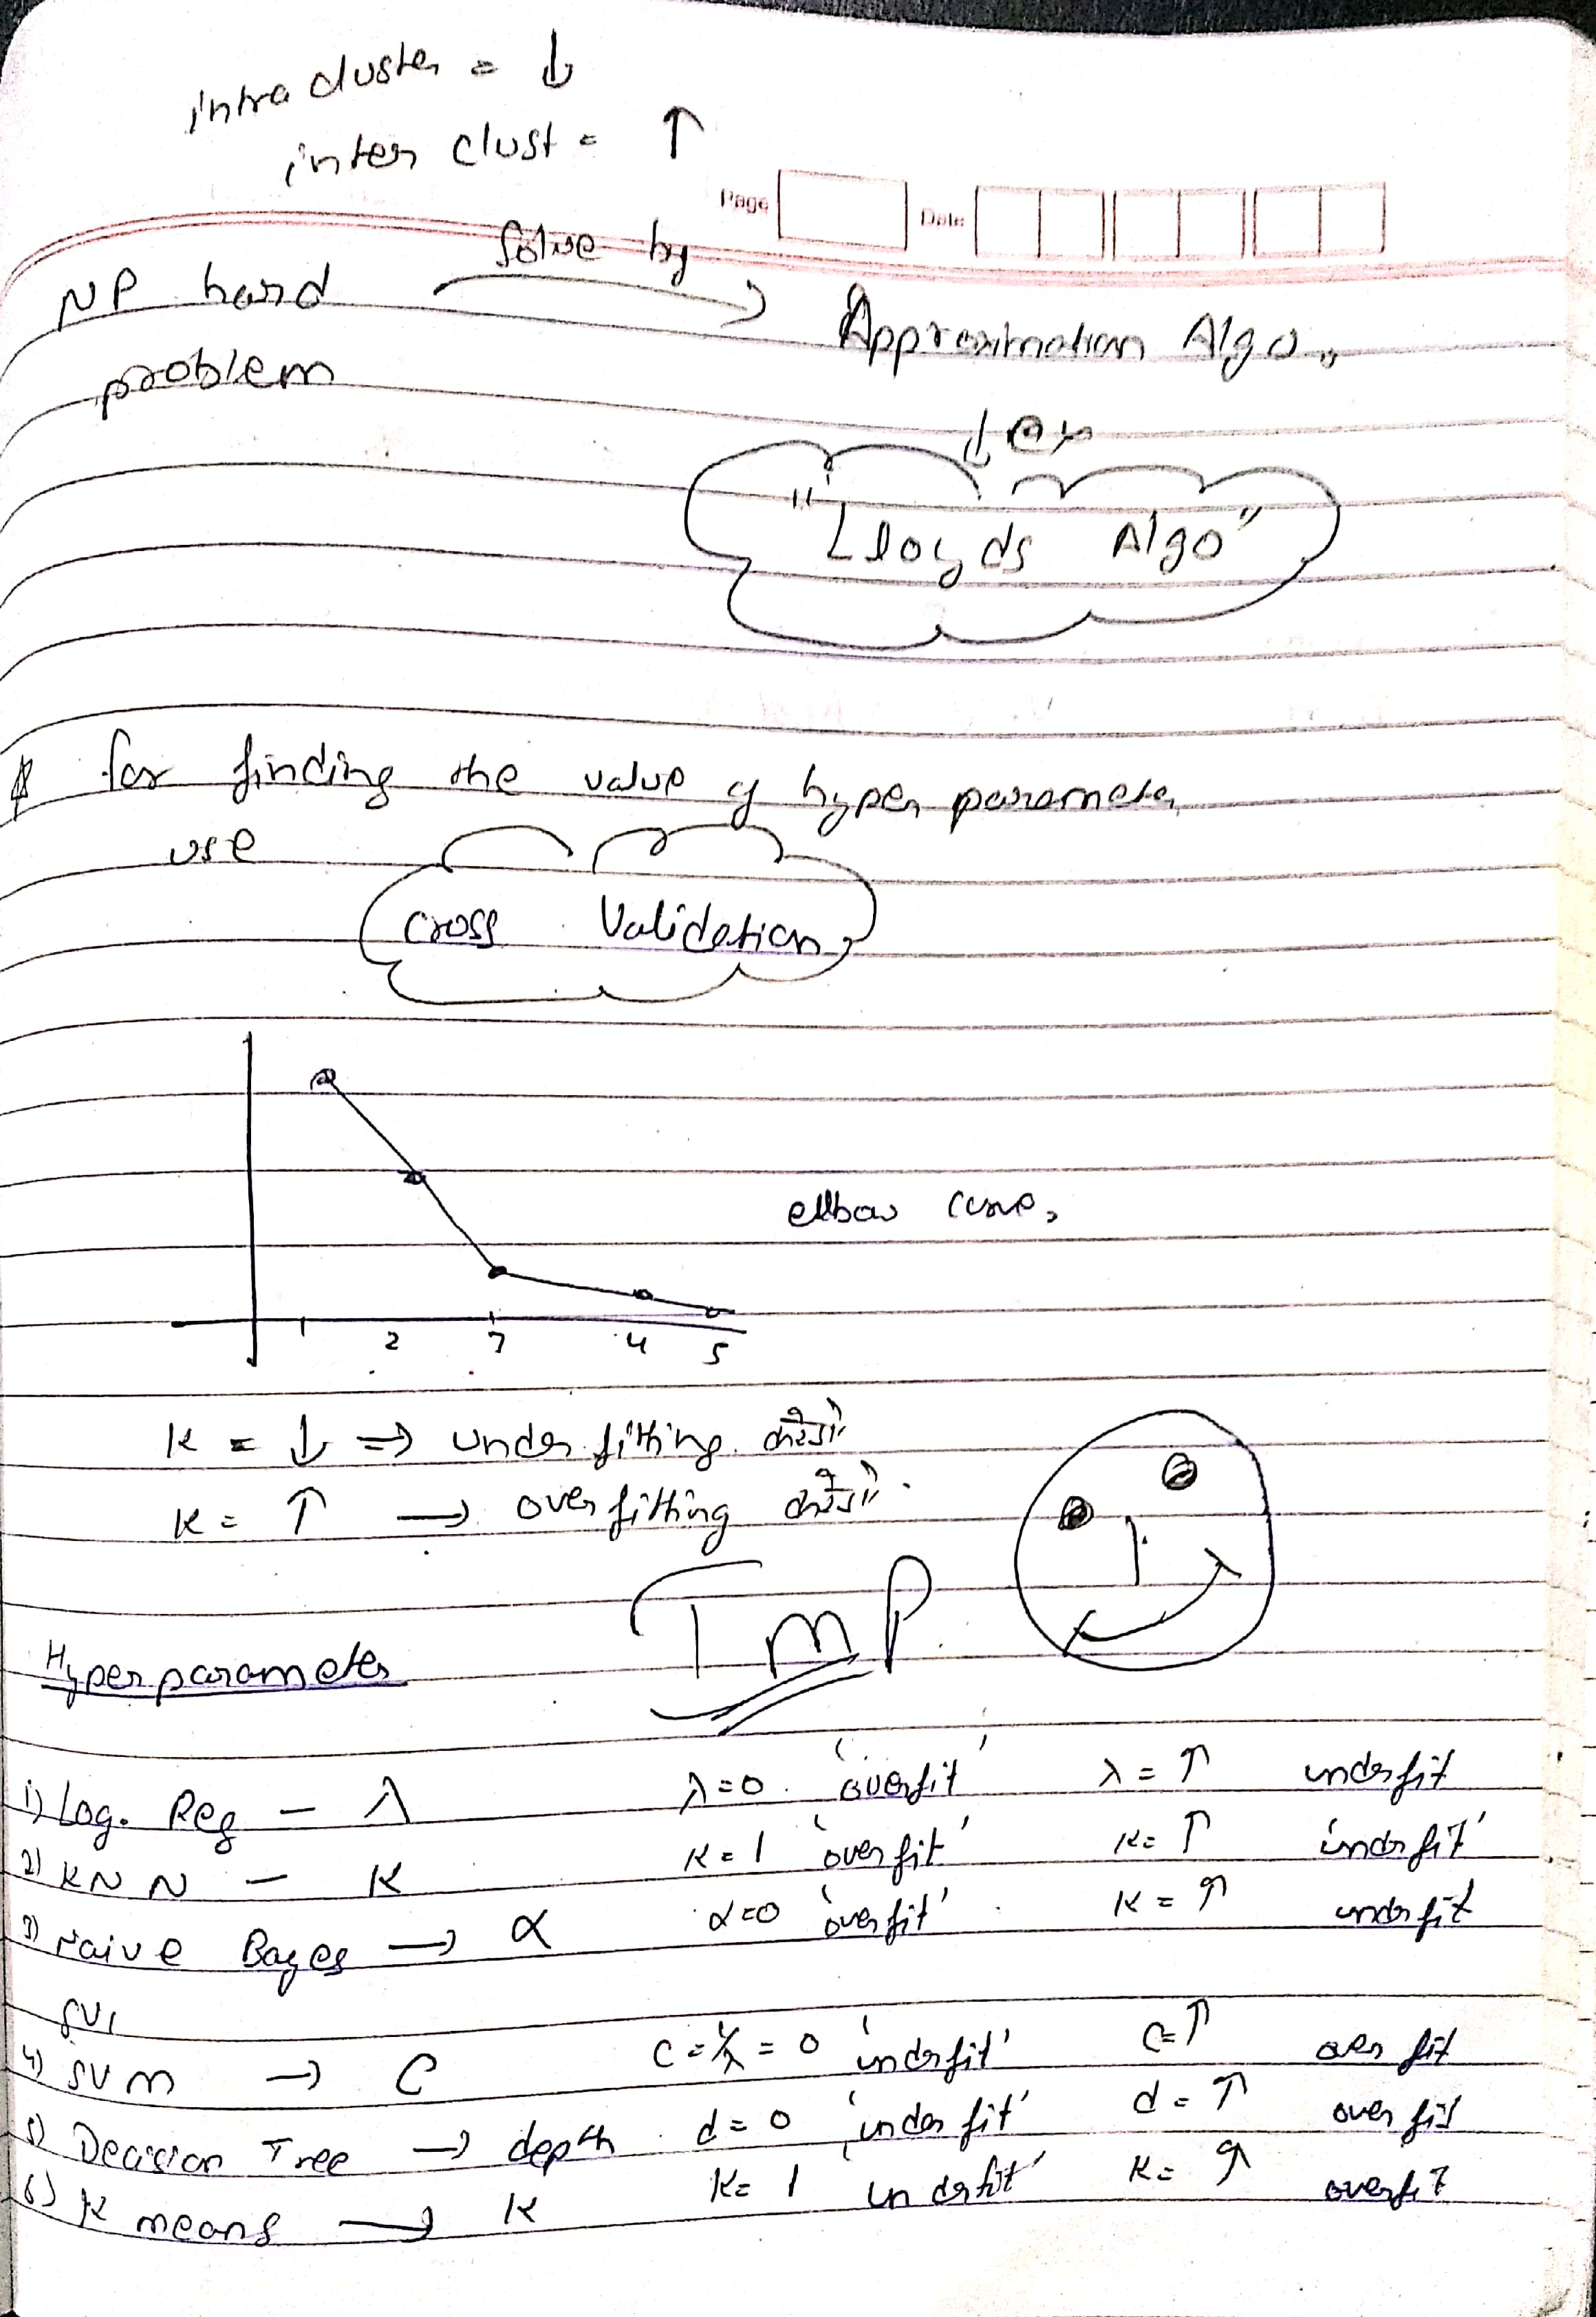 intra cluster = ↓
inter clust = ↑
Page
Date
NP hard solve by → Approximation Algo.
problem
↓ ex
"Lloyds Algo"
for finding the value of hyper parameter
use
Cross Validation
elbow curve,
1 2 3 4 5
K = ↓ ⇒ under fitting
K = ↑ → over fitting
Imp
Hyper parameter
1) Log. Reg – λ λ=0 'overfit' λ = ↑ underfit
2) KNN – K K=1 'overfit' K= ↑ 'underfit'
3) Naive Bayes → α α=0 'overfit' K = ↑ underfit
SV
4) SVM → C C = 1/λ = 0 'underfit' C=↑ over fit
5) Decision Tree → depth d=0 'under fit' d = ↑ over fit
6) K means → K K= 1 underfit' K= ↑ overfit